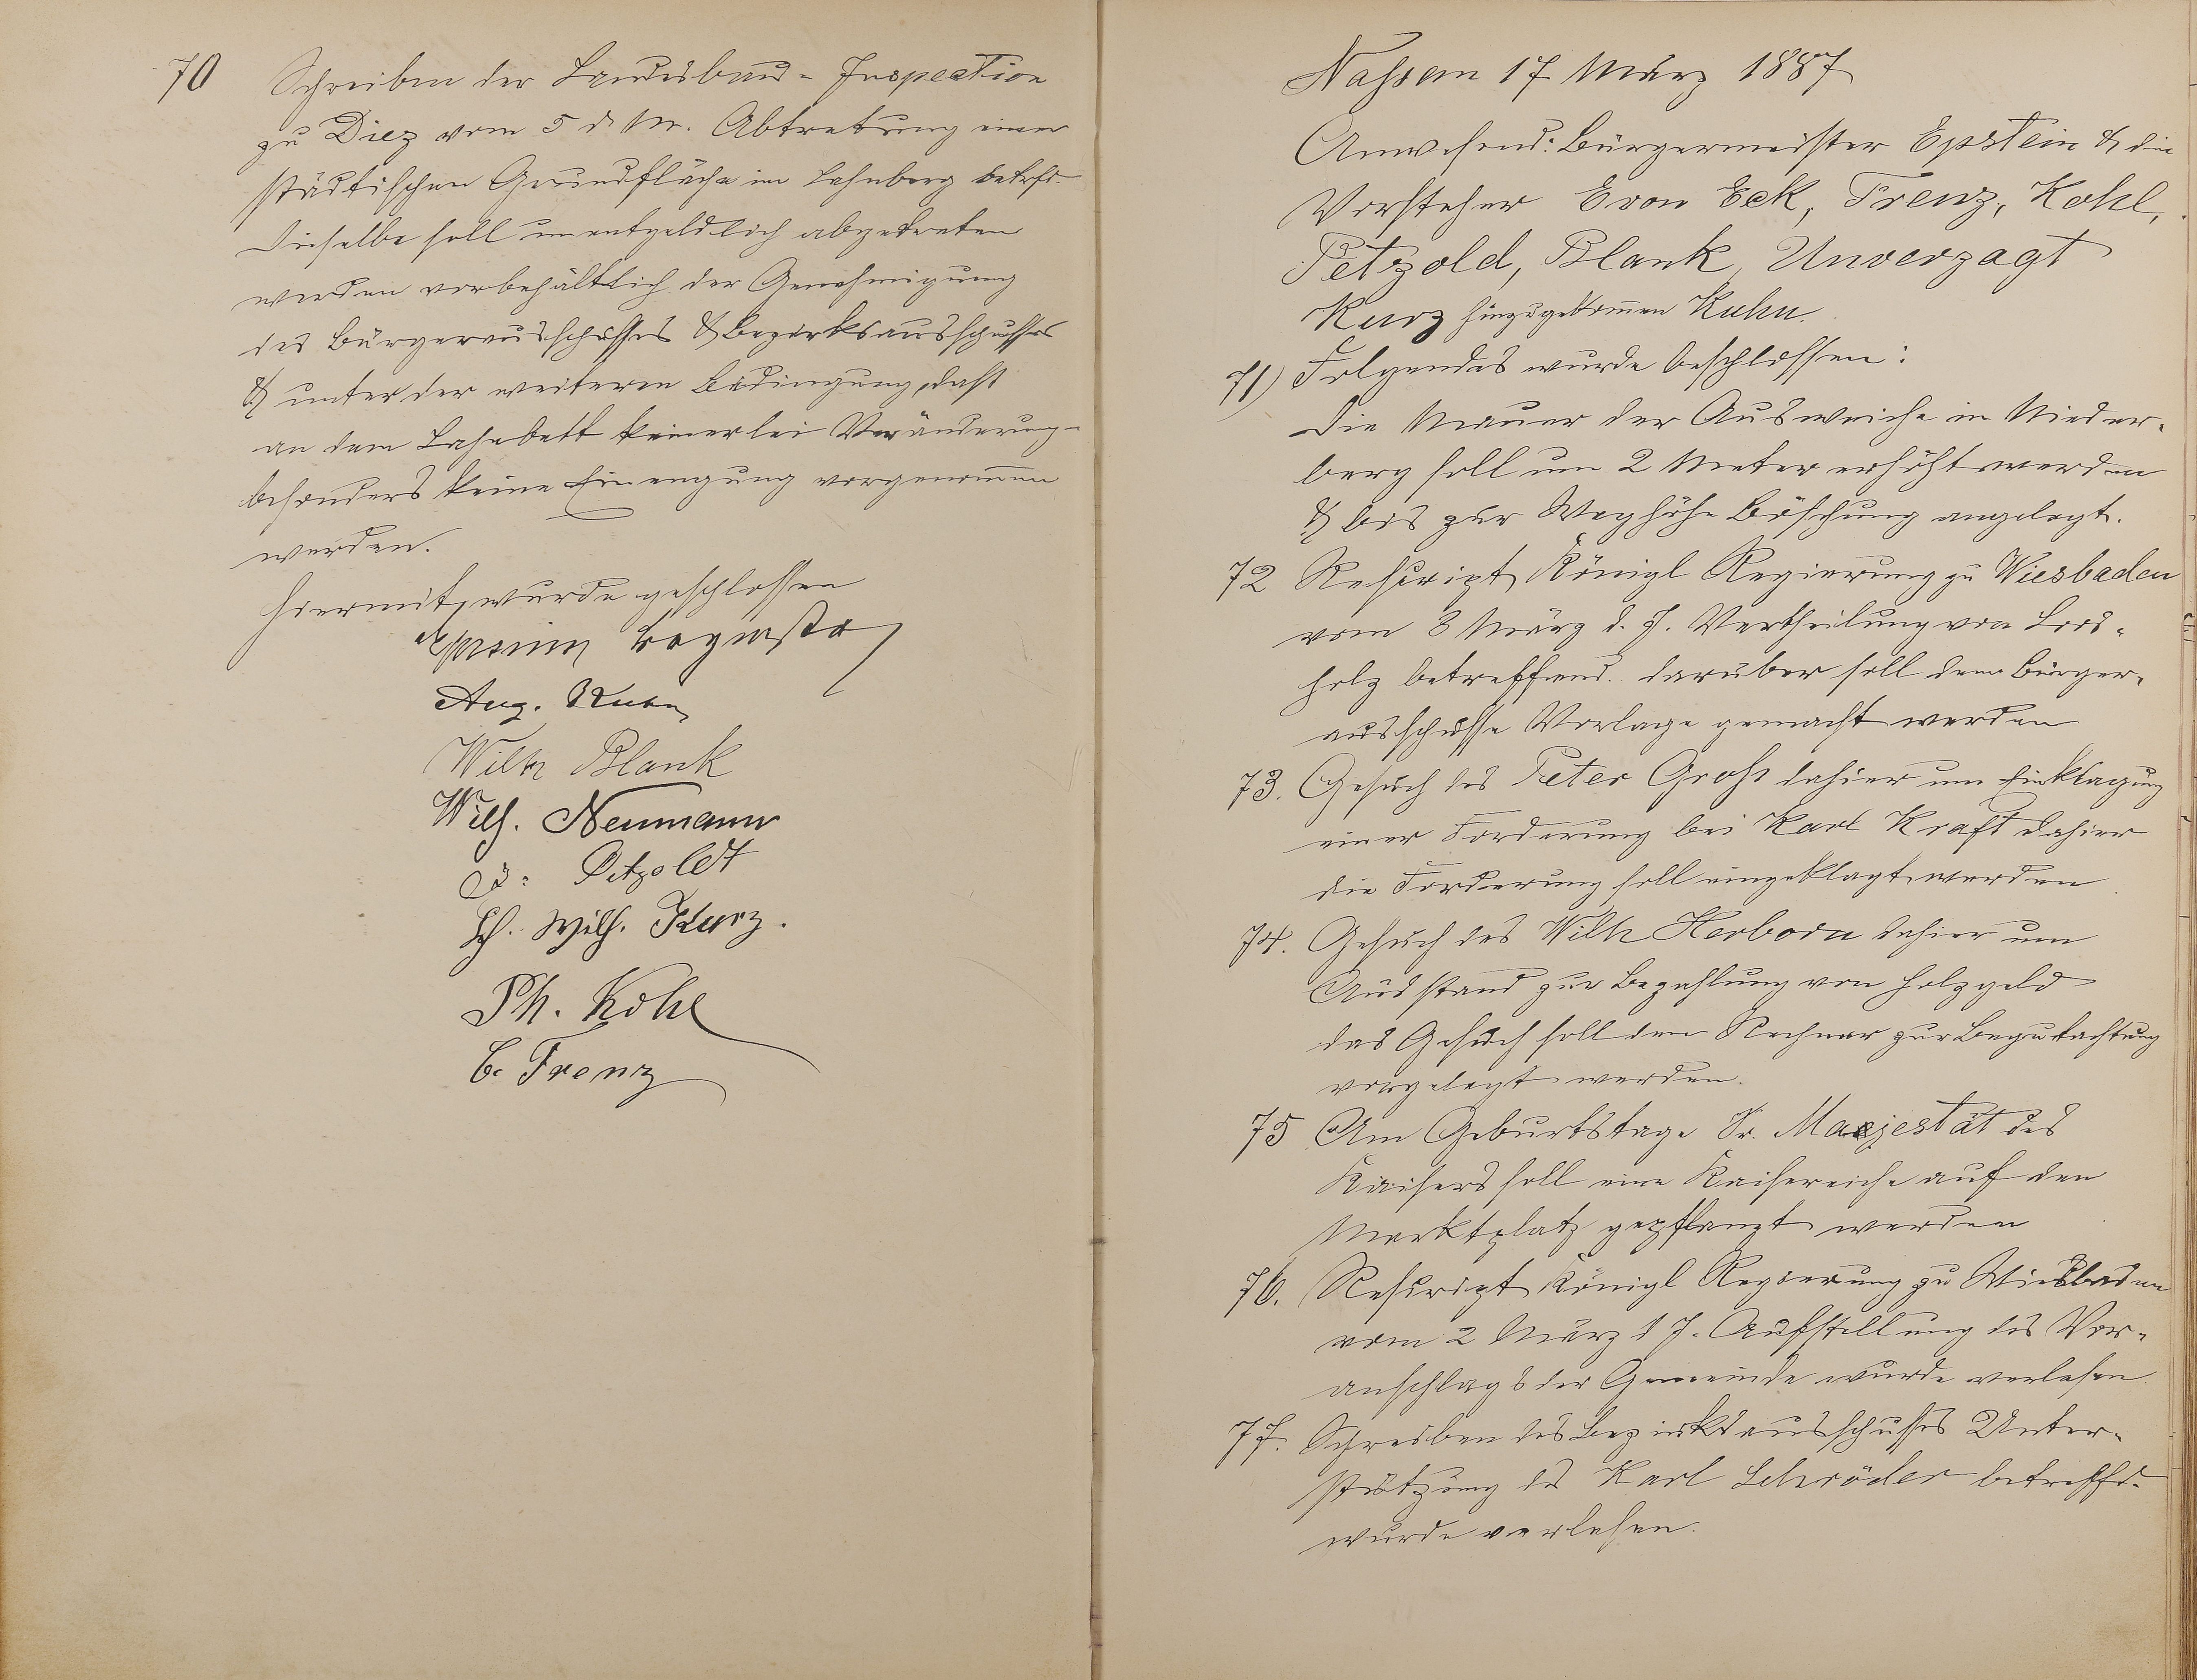 70 Schreiben der Landesbau-Inspection
zu Diez vom 5 d. M. Abtretung einer
städtischen Grundfläche im Lahnberg betrfd.
Dieselbe soll unentgeldlich abgetreten
werden vorbehältlich der Genehmigung
des Bürgerausschusses & Bezirksausschusses
& unter der weiteren Bedingung, daß
an dem Lahnbett keinerlei Veränderung-
besonders keine Einengung vorgenom̄en
werden.
Hiermit wurde geschlossen
Epstein Bürgrmstr
Aug. Kuhn
Wilh Blank
Wilh. Neumann
Petzoldt
Wilh. Kurz.
Ph. Kohl
C. Trenz
Nassau 17 März 1887
Anwesend: Bürgermeister Epstein & die
Vorsteher E von Eck, Trenz, Kohl,
Petzold, Blank, Unverzagt
Kurz hinzugekom̄en Kuhn.
71) Folgendes wurde beschlossen:
Die Mauer der Ausweiche in Nieder-
berg soll um 2 Meter erhöht werden
& bis zur Weghöhe Böschung angelegt.
72 Rescript Königl Regierung zu Wiesbaden
vom 3 März d. J. Vertheilung von Loos-
holz betreffend. darüber soll dem Bürger-
ausschusse Vorlage gemacht werden
73. Gesuch des Peter Groß dahier um Einklagung
einer Forderung bei Karl Kraft dahier
die Forderung soll eingeklagt werden
74. Gesuch des Wilh Herborn dahier um
Ausstand zur Bezahlung von Holzgeld
das Gesuch soll dem Rechner zur Begutachtung
vorgelegt werden.
75 Am Geburtstage Sr. Majestät des
Kaisers soll eine Kaisereiche auf den
Marktplatz gepflanzt werden
76. Rescript Königl Regierung zu Wiesbaden
vom 2 März d J. Aufstellung des Vor-
anschlags der Gemeinde wurde verlesen.
77. Schreiben des Bezirksausschusses Unter-
stützung des Karl Schröder betreffd.
wurde verlesen.